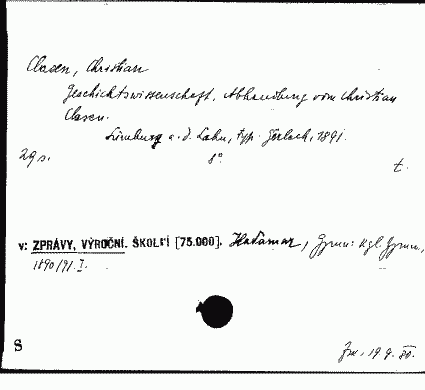 Clasen, Christian
Geschichtswissenschaft. Abhandlung vom Christian
Clasen.
Limburg a. d. Lahn, typ. Gerlach, 1891.
29 s. 8° t.
v: ZPRÁVY, VÝROČNÍ. ŠKOLNÍ [75.000]. Hadamar, Gymn: Kgl. Gymn,
1890/91. I.
S 19. 9. 30.